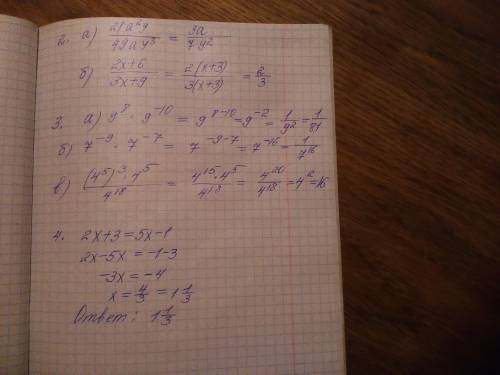 2. а) 21a²y / 49ay³ = 3a / 7y²
б) 2x+6 / 3x+9 = 2(x+3) / 3(x+3) = 2/3
3. а) 9⁸ · 9⁻¹⁰ = 9⁸⁻¹⁰ = 9⁻² = 1/9² = 1/81
б) 7⁻⁹ · 7⁻⁷ = 7⁻⁹⁻⁷ = 7⁻¹⁶ = 1/7¹⁶
в) (4⁵)³ · 4⁵ / 4¹⁸ = 4¹⁵ · 4⁵ / 4¹⁸ = 4²⁰ / 4¹⁸ = 4² = 16
4. 2x+3 = 5x-1
2x-5x = -1-3
-3x = -4
x = 4/3 = 1 1/3
Ответ: 1 1/3